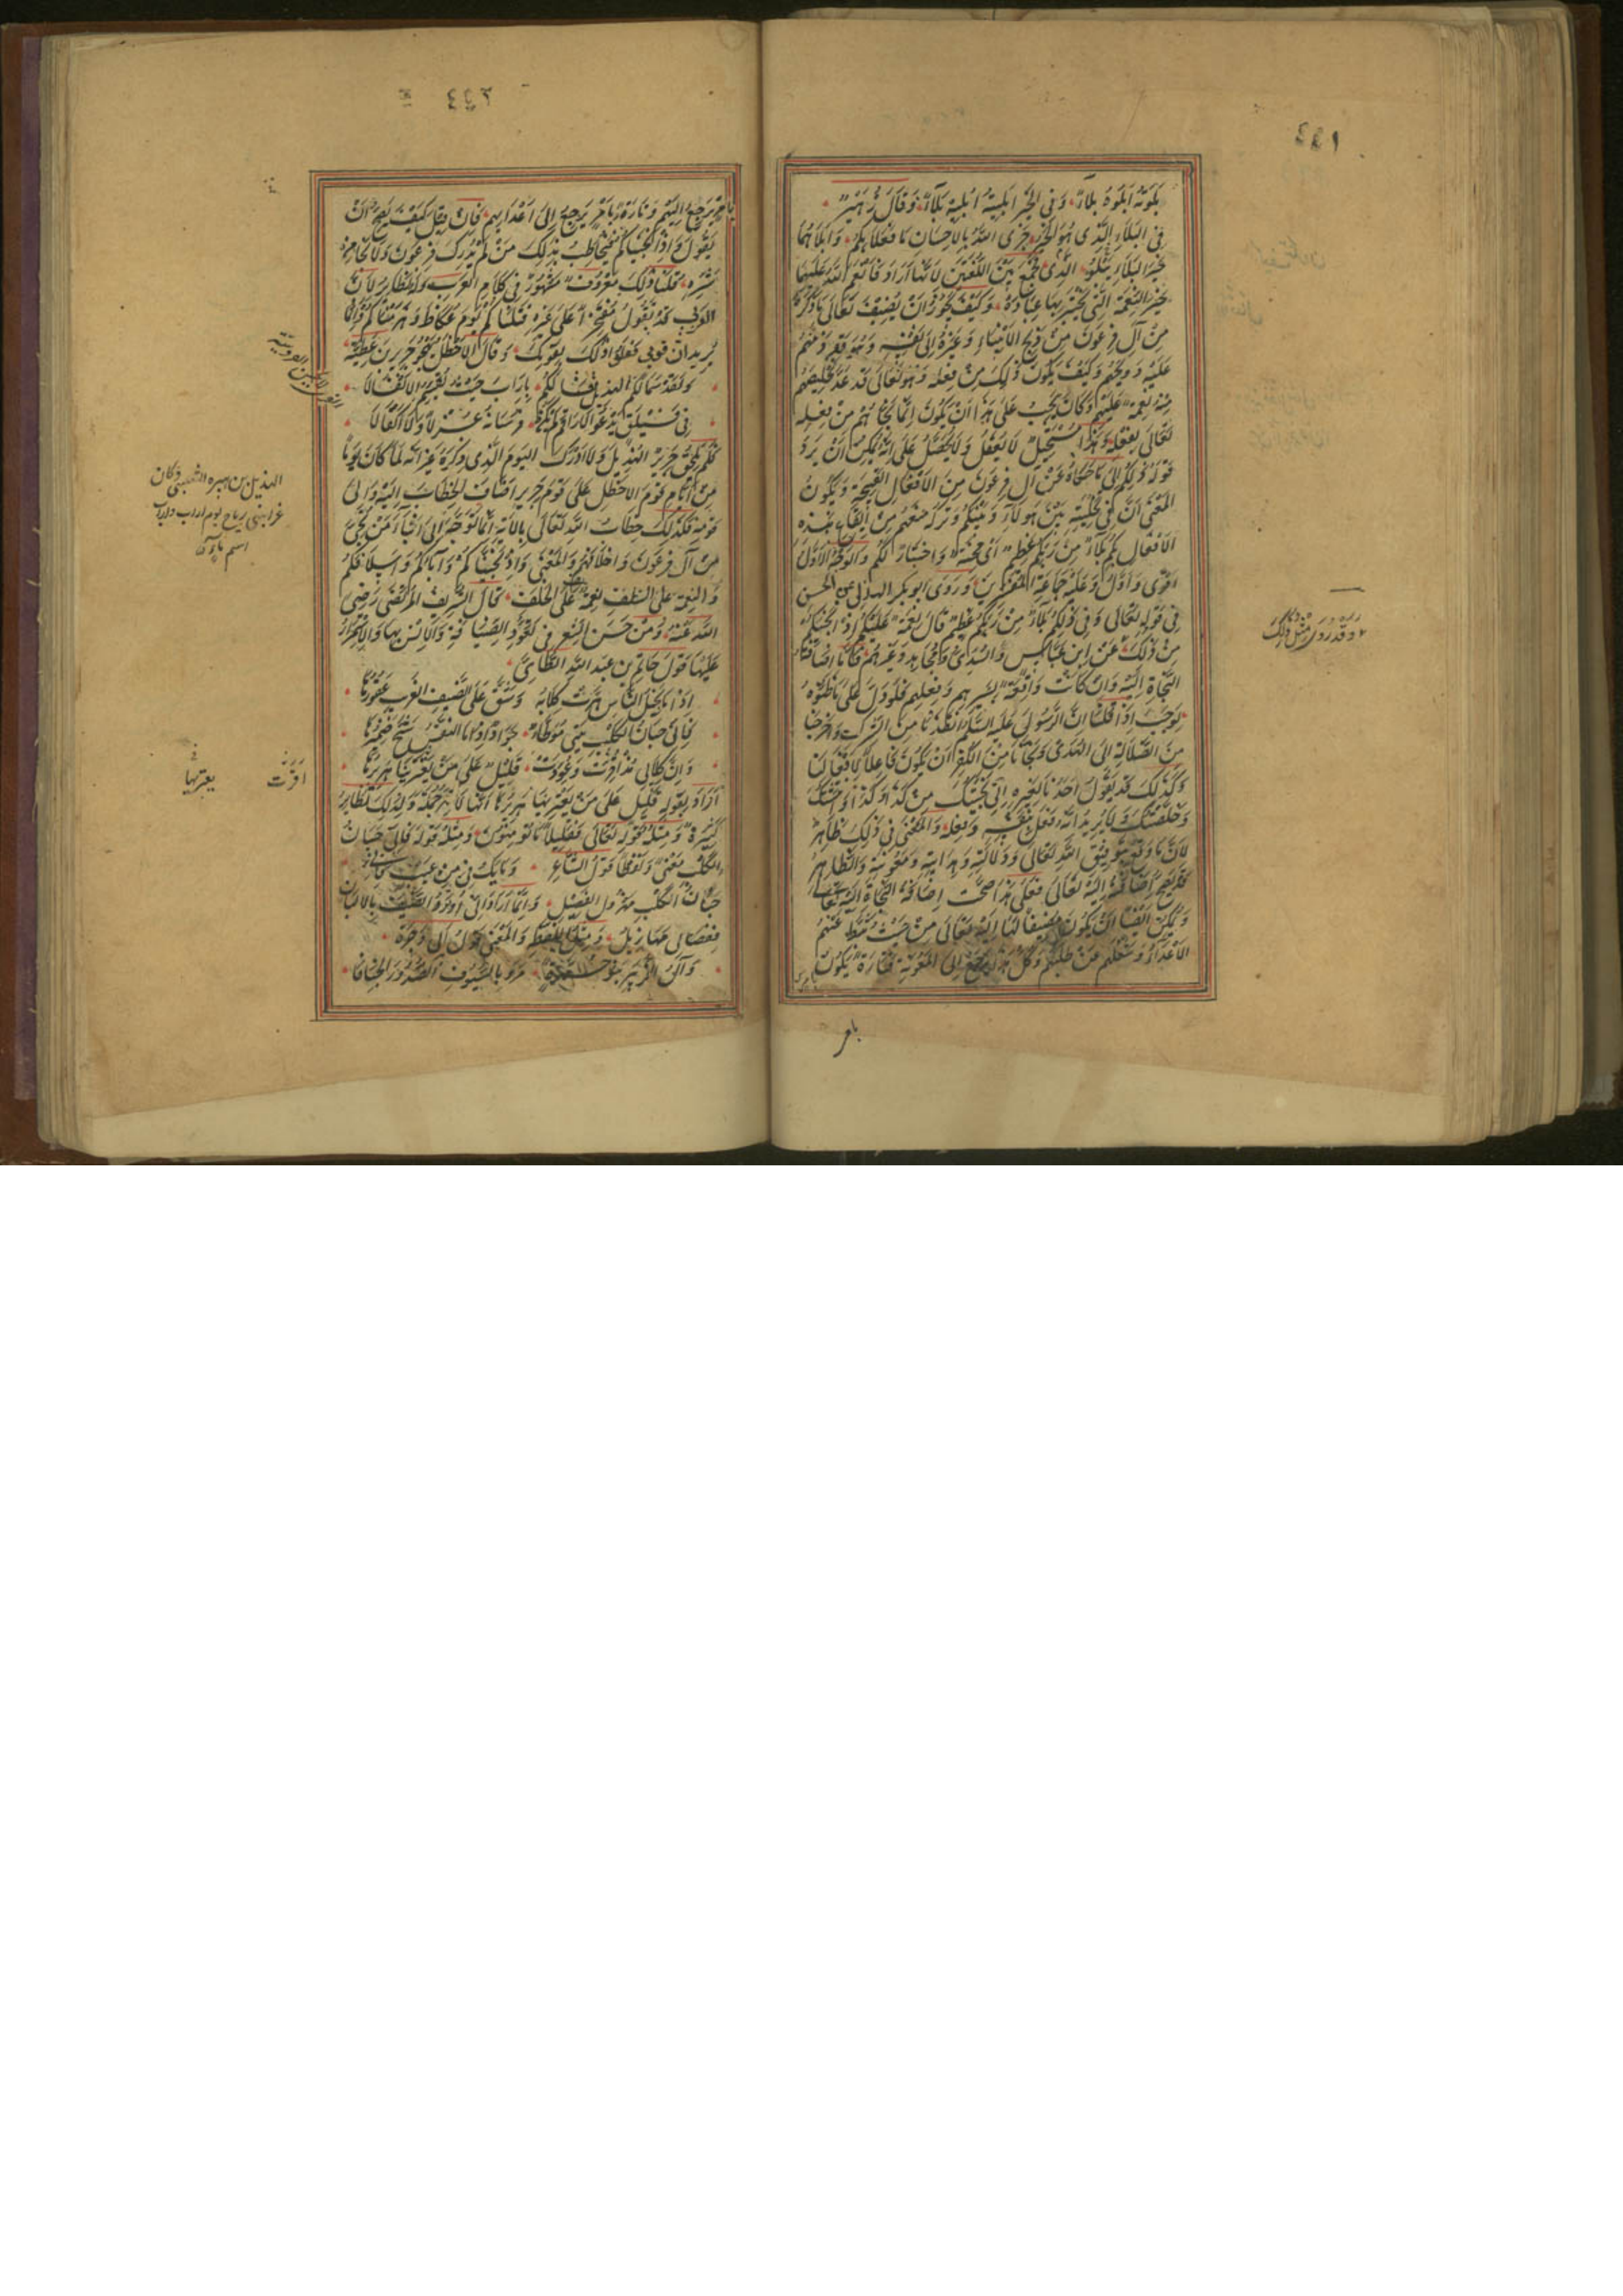 ٤٤١
بَلَوْتُهُ اَبْلُوهُ بَلَاءً وَفى الخَيرِ اَبلَيتُهُ اُبليهِ بَلاءً وَقالَ زُهَيرٌ
فى البَلاءِ الَّذى هُوَ الخَيرُ جَزَى اللهُ بالاِحسانِ ما فَعَلا بِكُم وَاَبلاهُما
خَيرَ البَلاءِ الَّذى يَبلُو فَجَمَعَ بَينَ اللُّغَتَينِ لاَنَّهُ اَرادَ فَاَنعَمَ اللهُ عَلَيهِما
خَيرَ النِّعمَةِ الَّتى يَختَبِرُ بِها عِبادَهُ وَكَيفَ يَجُوزُ اَن يُضيفَ تَعالى ما ذَكَرَهُ
مِن آلِ فِرعَونَ مِن ذَبحِ الاَبناءِ وَغَيرِهِ اِلى نَفسِهِ وَهُوَ قَد ذَمَّهُم
عَلَيهِ وَوَبَّخَهُم وَكَيفَ يَكُونُ ذلِكَ مِن فِعلِهِ وَهُوَ تَعالى قَد عَدَّ تَخليصَهُم
مِنهُ نِعمَةً عَلَيهِم وَكانَ يَجِبُ عَلى هذا اَن يَكُونَ اِنَّما نَجّاهُم مِن فِعلِهِ
تَعالى بِفِعلِهِ وَهذا مُستَحيلٌ لا يُعقَلُ وَلا يُحَصَّلُ عَلى اَنَّهُ يُمكِنُ اَن يَرُدَّ
قَولَهُ ذلِكُم اِلى ما حَكاهُ عَن آلِ فِرعَونَ مِنَ الاَفعالِ القَبيحَةِ وَيَكُونُ
المَعنى اَنَّ فى تَخلِيَتِهِ بَينَ هؤُلاءِ وَبَينَكُم وَتَركِهِ مَنعَهُم مِن ايقاعِ هذِهِ
الاَفعالِ بِكُم بَلاءٌ مِن رَبِّكُم عَظيمٌ اَى مِحنَةٌ وَاختِبارٌ لَكُم وَالوَجهُ الاَوَّلُ
اَقوى وَاَولى وَعَلَيهِ جَماعَةُ المُفَسِّرينَ وَرَوى ابو بكر الهذلى عن الحسن
فى قَولِهِ تَعالى وَفى ذلِكُم بَلاءٌ مِن رَبِّكُم عَظيمٌ قالَ نِعمَةٌ عَلَيكُم اِذ اَنجَيكُم
مِن ذلِكَ عَن ابنِ عَبّاسٍ وَالسُّدِّىِّ وَمُجاهِدٍ وَغَيرِهِم فَاَمّا اِضافَةُ
النَّجاةِ اِلَيهِ وَاِن كانَت واقِعَةً بِسَيرِهِم وَفِعلِهِم فَلَو دَلَّ عَلى ما ظَنُّوهُ
لَوَجَبَ اِذا قُلنا اِنَّ الرَّسُولَ عَلَيهِ السَّلَامُ اَنقَذَنا مِنَ الشِّركِ وَاَخرَجَنا
مِنَ الضَّلالَةِ اِلى الهُدى وَنَجّانا مِنَ الكُفرِ اَن يَكُونَ فاعِلاً لاَفعالِنا
وَكَذلِكَ قَد يَقُولُ اَحَدُنا لِغَيرِهِ اِنّى نَجَّيتُكَ مِن كَذا وَكَذا
وَخَلَّصتُكَ وَلا يُريدُ اَنَّهُ فَعَلَ بِنَفسِهِ فِعلَهُ وَالمَعنى فى ذلِكَ ظاهِرٌ
لاَنَّ ما وَقَعَ بِتَوفيقِ اللهِ تَعالى وَدَلالَتِهِ وَهِدايَتِهِ وَمَعُونَتِهِ وَاَلطافِهِ
قَد يَصِحُّ اِضافَتُهُ اِلَيهِ تَعالى فَعَلى هذا صَحَّت اِضافَةُ النَّجاةِ اِلَيهِ تَعالى
وَيُمكِنُ اَيضاً اَن يَكُونَ مُضيفاً لَها اِلَيهِ تَعالى مِن حَيثُ ثَبَّطَ عَنهُمُ
الاَعداءَ وَشَغَلَهُم عَن طَلَبِهِم وَكُلُّ هذا يَرجِعُ اِلى المَعُونَةِ فَتارَةً يَكُونُ
بامر
وَقَد رُوِىَ مِثلُ ذلِكَ
٤٤٢
بِاَمرٍ يَرجِعُ اِلَيهِم وَتارَةً بِاَمرٍ يَرجِعُ اِلى اَعدائِهِم فَاِن قيلَ كَيفَ يَصِحُّ اَن
يَقُولَ وَاِذ اَنجَيناكُم فَيُخاطِبُ بِذلِكَ مَن لَم يُدرِك فِرعَونَ وَلا نَجا مِن
شَرِّهِ قُلنا ذلِكَ مَعرُوفٌ مَشهُورٌ فى كَلامِ العَرَبِ وَلَهُ نَظائِرُ لاَنَّ
العَرَبِىَّ قَد يَقُولُ مُفتَخِراً عَلى غَيرِهِ قَتَلناكُم يَومَ عُكاظَ وَهَزَمناكُم وَاِنَّما
يُريدُ اَنَّ قَومى فَعَلُوا ذلِكَ بِقَومِكَ وَقالَ الاَخطَلُ يَهجُو جَريرَ بنَ عَطِيَّةَ
وَلَقَد سَمالَكُمُ الهُذَيلُ فَنالَكُم بِاِرابَ حَيثُ يُقَسِّمُ الاَنفالا
فى فَيلَقٍ يَدعُو الاَراقِمَ لَم تَكُن فُرسانُهُ عُزلاً وَلا اَكفالا
فَلَم يَلحَق جَريرٌ الهُذَيلَ وَلا اَدرَكَ اليَومَ الَّذى ذَكَرَهُ غَيرَ اَنَّهُ لَمّا كانَ يَوماً
مِن اَيّامِ قَومِ الاَخطَلِ عَلى قَومِ جَريرٍ اَضافَ الخِطابَ اِلَيهِ وَاِلى
قَومِهِ فَكَذلِكَ خِطابُ اللهِ تَعالى بِالآيَةِ اِنَّما تَوَجَّهَ اِلى اَبناءِ مَن نُجِّىَ
مِن آلِ فِرعَونَ وَاَخلافِهِم وَالمَعنى وَاِذ نَجَّينا آباءَكُم وَاَسلافَكُم
وَالنِّعمَةُ عَلى السَّلَفِ نِعمَةٌ عَلى الخَلَفِ قالَ الشَّريفُ المُرتَضى رَضِىَ
اللهُ عَنهُ وَمِن حَسَنِ الشِّعرِ فى تَعَوُّدِ الضِّيافَةِ وَالاُنسِ بِها وَالاِستِمرارِ
عَلَيها قَولُ حاتِمِ بنِ عَبدِ اللهِ الطّائِىِّ
اِذا ما بَخيلُ النّاسِ هَرَّت كِلابُهُ وَشَقَّ عَلى الضَّيفِ الغَريبِ عَقُورُها
فَاِنّى جَبانُ الكَلبِ بَيتى مُوَطَّأٌ جَوادٌ اِذا ما النَّفسُ شَحَّ ضَميرُها
وَاِنَّ كِلابى مُذ اُقِرَّت وَعُوِّدَت قَليلٌ عَلى مَن يَعتَرينا هَريرُها
اَرادَ بِقَولِهِ قَليلٌ عَلى مَن يَعتَرينا هَريرُها اَنَّها لا تَهِرُّ جُملَةً وَلِذلِكَ نَظائِرُ
كَثيرَةٌ وَمِثلُهُ قَولُهُ تَعالى فَقَليلاً ما يُؤمِنُونَ وَمِثلُ قَولِهِ فَاِنّى جَبانُ
الكَلبِ مَعنىً وَلَفظاً قَولُ الشّاعِرِ وَما يَكُ فِىَّ مِن عَيبٍ فَاِنّى
جَبانُ الكَلبِ مَهزُولُ الفَصيلِ وَاِنَّما اَرادَ اَنّى اُوثِرُ الضَّيفَ بِالاَلبانِ
فَفِصالى مَهازيلُ وَمِثلُهُ فى اللَّفظِ وَالمَعنى قَولُ اَبى وَجزَةَ
وَآلُ الزُّبَيرِ بَنُو حُرَّةٍ مَرَوا بِالسُّيُوفِ الصُّدُورَ الجِنافا
الهذيل بن هبيرة التغلبى وكان
غزا بنى رياح يوم اراب واراب
اسم ماء
اَقَرَّت
يعتريها